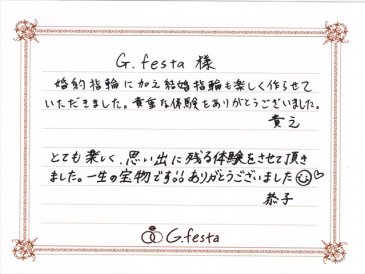 G.festa 様
婚約指輪に加え結婚指輪も楽しく作らせて
いただきました。貴重な体験をありがとうございました。
貴之
とても楽しく、思い出に残る体験をさせて頂き
ました。一生の宝物です!!ありがとうございました
恭子
G.festa